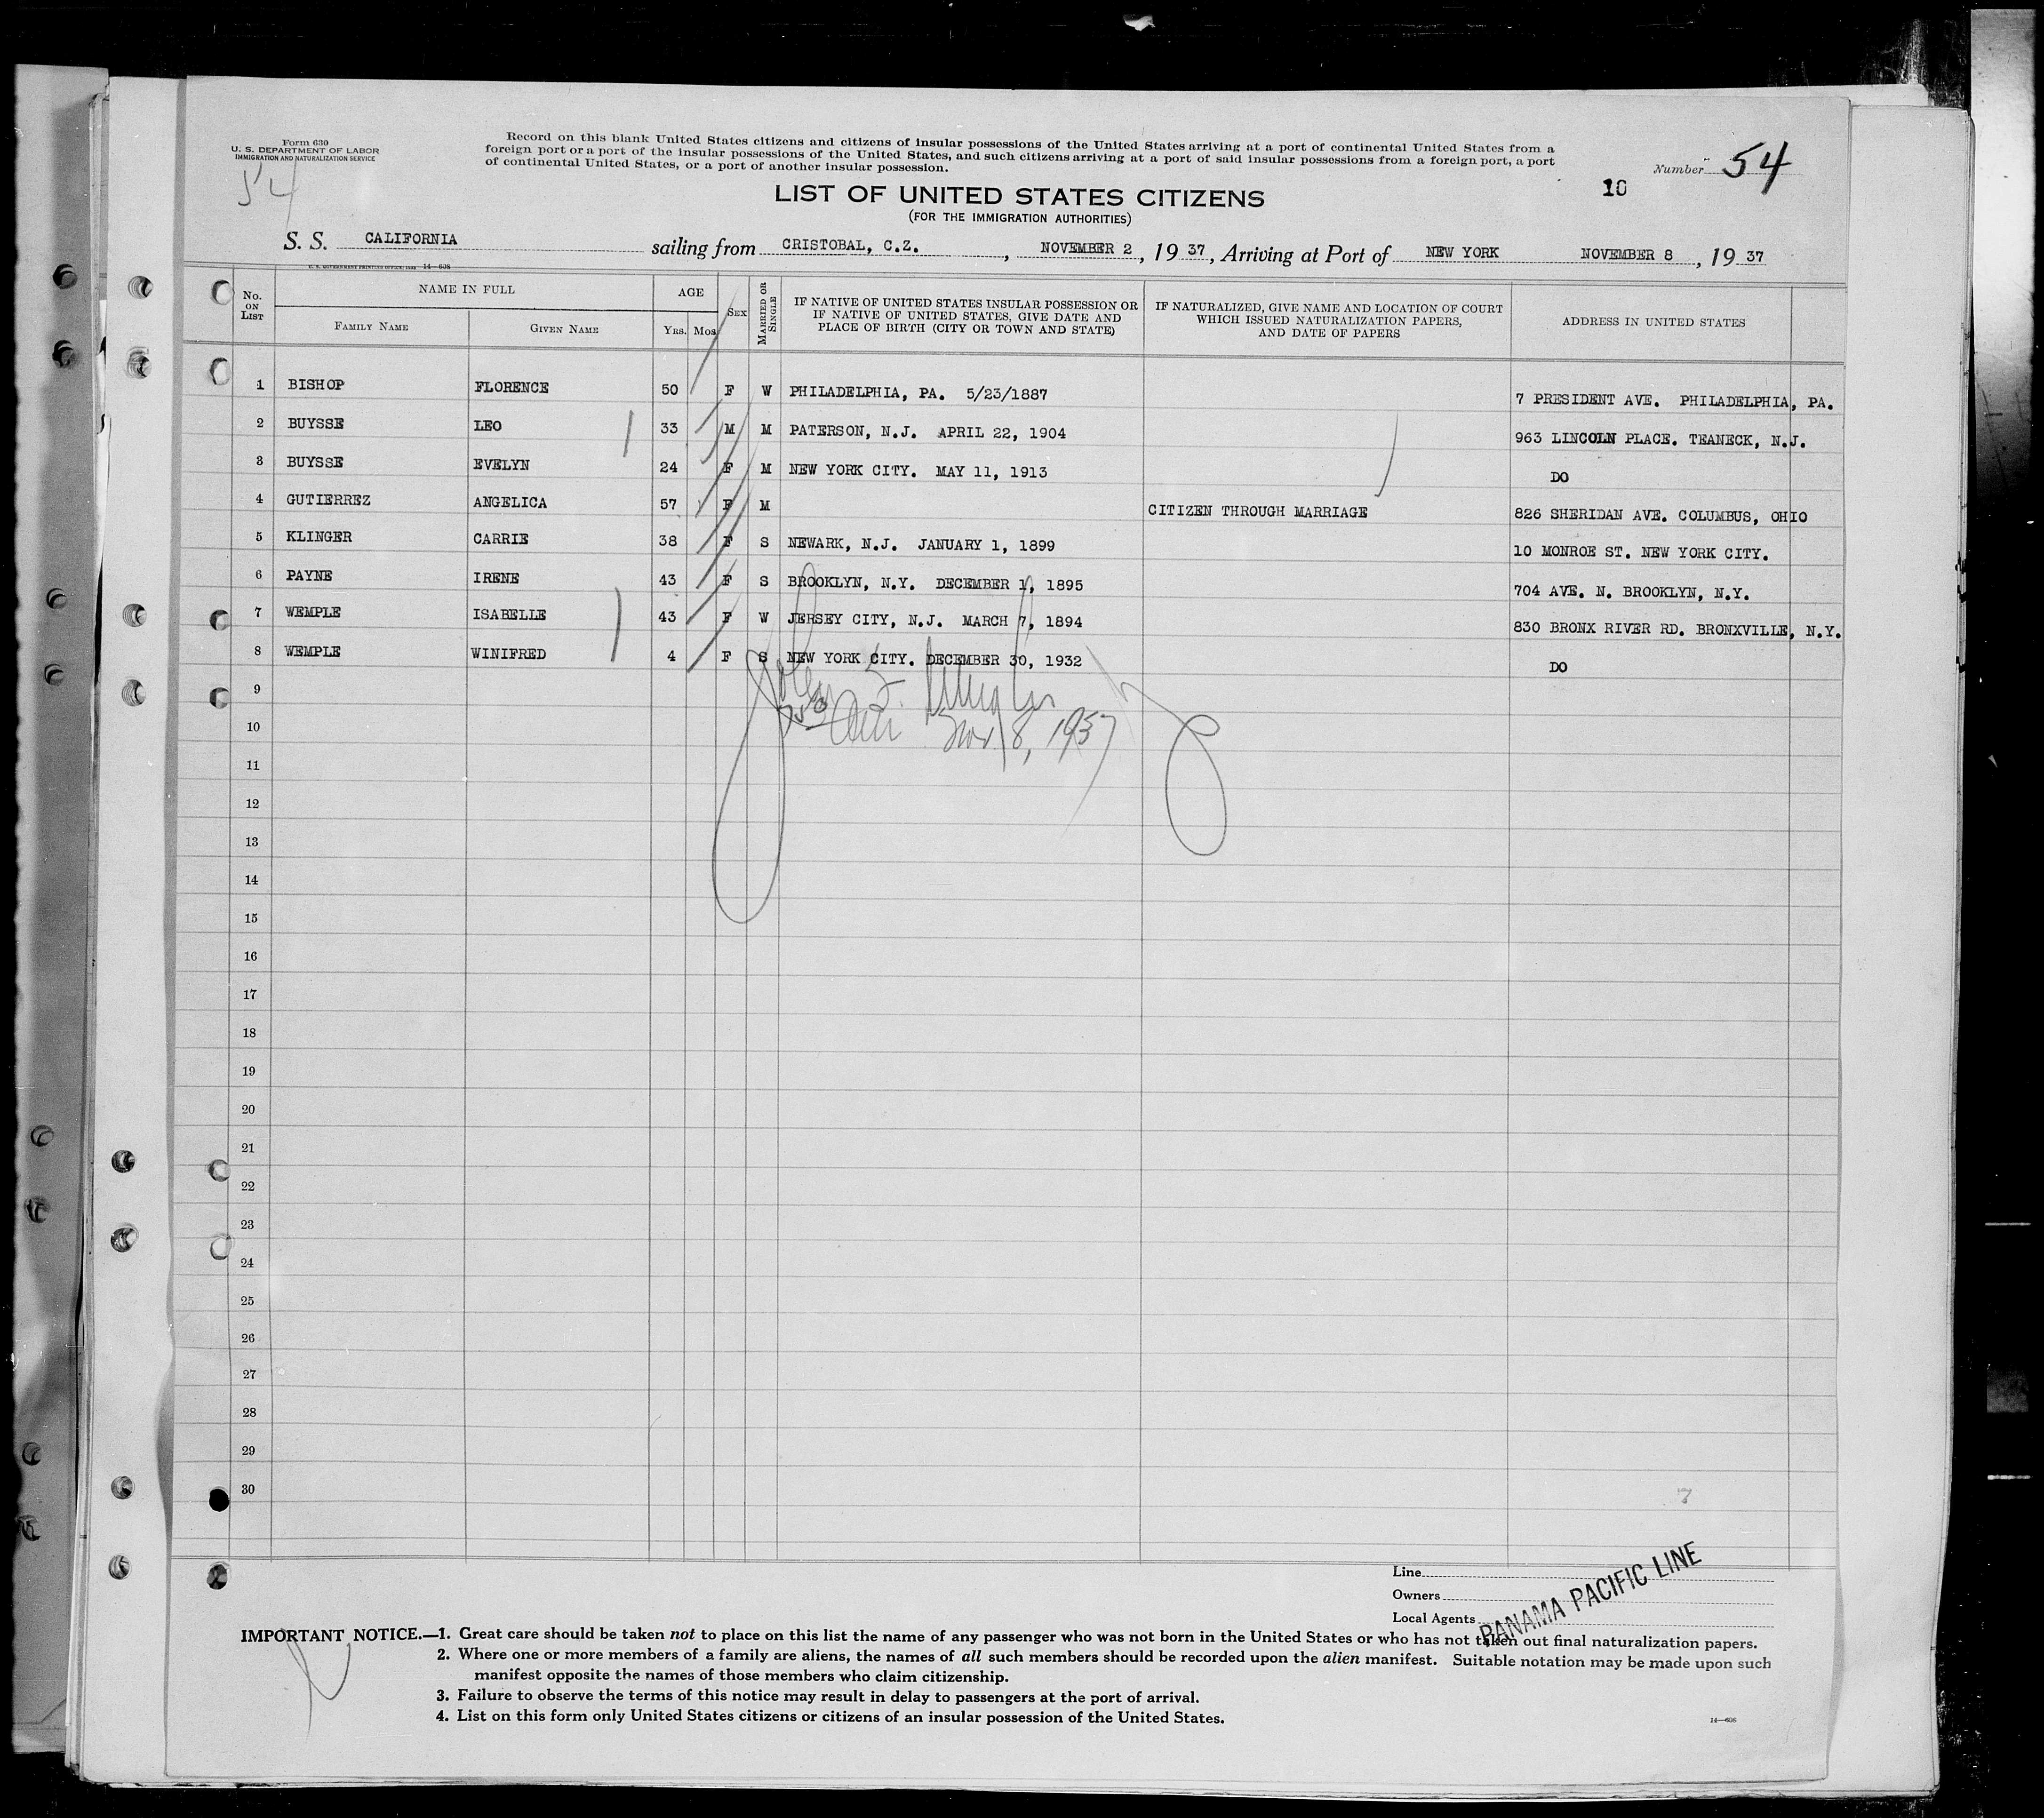 Form 630
U. S. DEPARTMENT OF LABOR
IMMIGRATION AND NATURALIZATION SERVICE
54
Record on this blank United States citizens and citizens of insular possessions of the United States arriving at a port of continental United States from a
foreign port or a port of the insular possessions of the United States, and such citizens arriving at a port of said insular possessions from a foreign port, a port
of continental United States, or a port of another insular possession.
Number 54
10
LIST OF UNITED STATES CITIZENS
(FOR THE IMMIGRATION AUTHORITIES)
S. S. CALIFORNIA sailing from CRISTOBAL, C.Z., NOVEMBER 2, 1937, Arriving at Port of NEW YORK NOVEMBER 8, 1937
14—608
No. ON LIST
NAME IN FULL
FAMILY NAME
GIVEN NAME
AGE
YRS. MOS
SEX
MARRIED OR SINGLE
IF NATIVE OF UNITED STATES INSULAR POSSESSION OR
IF NATIVE OF UNITED STATES, GIVE DATE AND
PLACE OF BIRTH (CITY OR TOWN AND STATE)
IF NATURALIZED, GIVE NAME AND LOCATION OF COURT
WHICH ISSUED NATURALIZATION PAPERS,
AND DATE OF PAPERS
ADDRESS IN UNITED STATES
1 BISHOP FLORENCE 50 F W PHILADELPHIA, PA. 5/23/1887 7 PRESIDENT AVE. PHILADELPHIA, PA.
2 BUYSSE LEO 33 M M PATERSON, N.J. APRIL 22, 1904 963 LINCOLN PLACE. TEANECK, N.J.
3 BUYSSE EVELYN 24 F M NEW YORK CITY. MAY 11, 1913 DO
4 GUTIERREZ ANGELICA 57 F M CITIZEN THROUGH MARRIAGE 826 SHERIDAN AVE. COLUMBUS, OHIO
5 KLINGER CARRIE 38 F S NEWARK, N.J. JANUARY 1, 1899 10 MONROE ST. NEW YORK CITY.
6 PAYNE IRENE 43 F S BROOKLYN, N.Y. DECEMBER 1, 1895 704 AVE. N. BROOKLYN, N.Y.
7 WEMPLE ISABELLE 43 F W JERSEY CITY, N.J. MARCH 7, 1894 830 BRONX RIVER RD. BRONXVILLE, N.Y.
8 WEMPLE WINIFRED 4 F S NEW YORK CITY. DECEMBER 30, 1932 DO
9
10
Nov 8, 1937
11
12
13
14
15
16
17
18
19
20
21
22
23
24
25
26
27
28
29
30
7
Line
Owners
Local Agents
PANAMA PACIFIC LINE
IMPORTANT NOTICE.—1. Great care should be taken not to place on this list the name of any passenger who was not born in the United States or who has not taken out final naturalization papers.
2. Where one or more members of a family are aliens, the names of all such members should be recorded upon the alien manifest. Suitable notation may be made upon such
manifest opposite the names of those members who claim citizenship.
3. Failure to observe the terms of this notice may result in delay to passengers at the port of arrival.
4. List on this form only United States citizens or citizens of an insular possession of the United States.
14—608